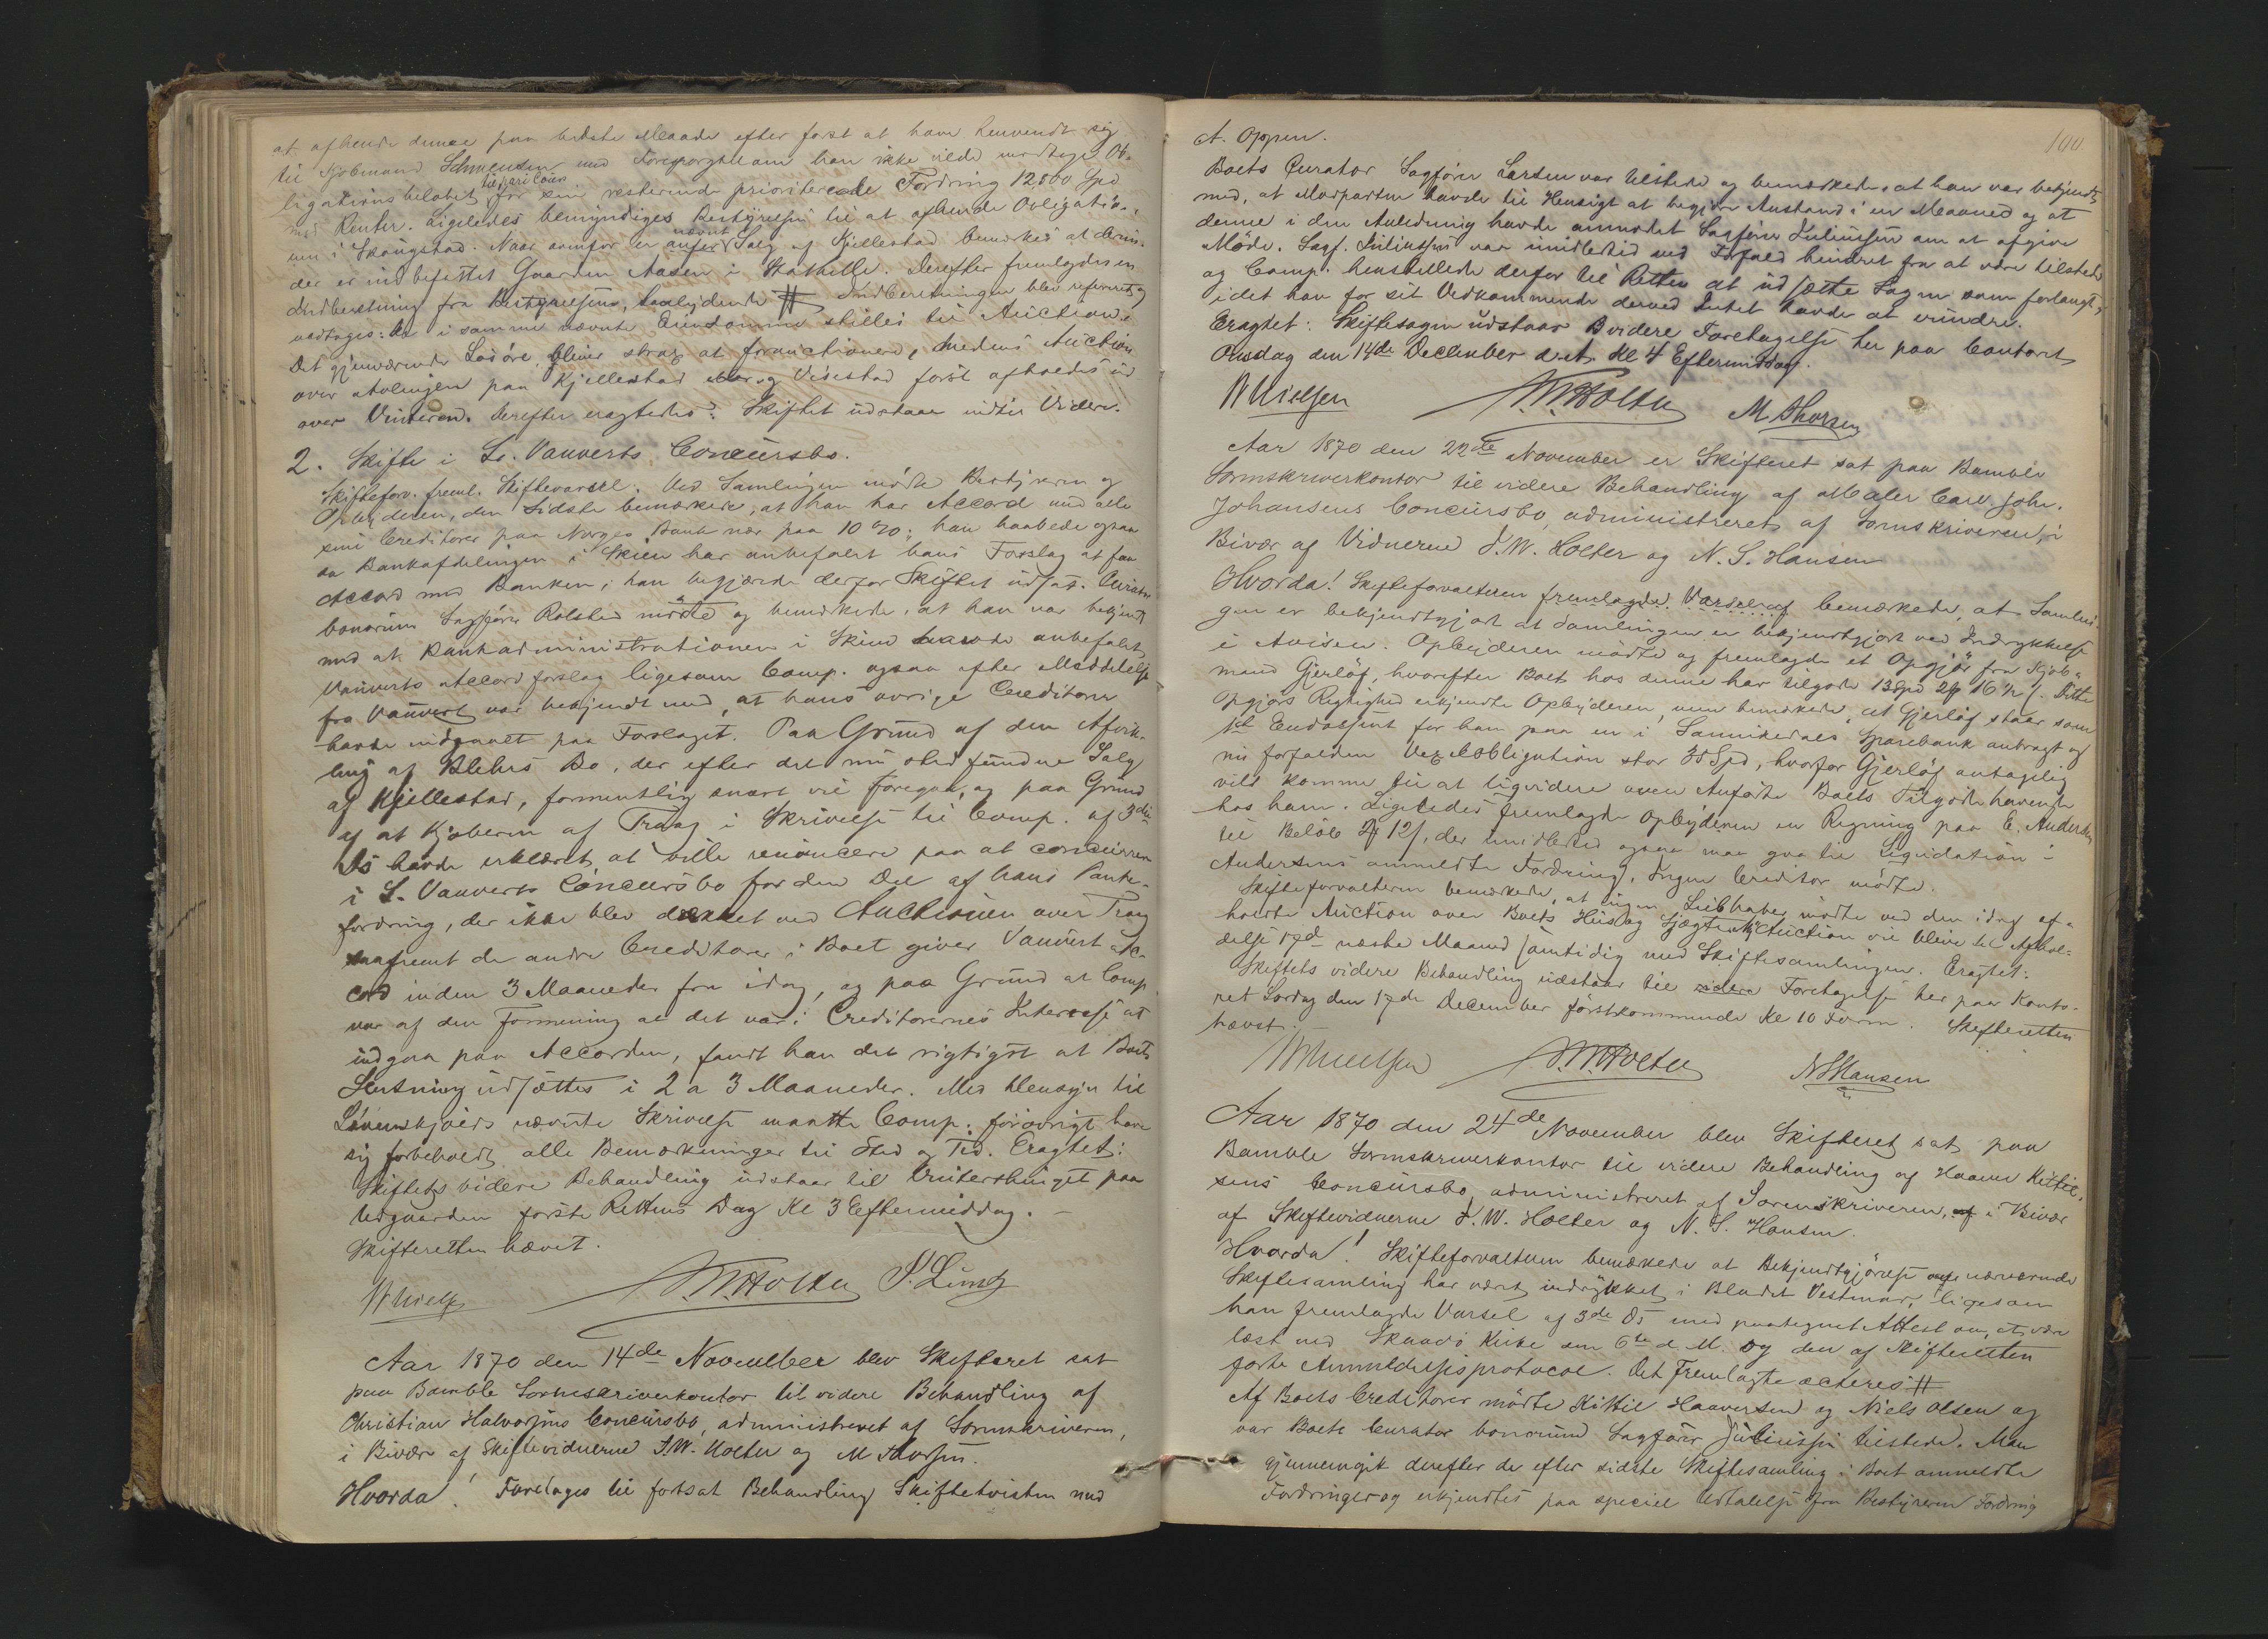 at afhende denne paa bedste Maade efter først at have henvendt sig
til Kjøbmand Schweder med Forespørgsel om han ikke vilde modtage Ob-
ligationsbeløbet til pari Cours for sin resterende prioriterede Fordring 12,500 Spd
med Renter. Ligeledes bemyndiges Bestyrelsen til at afhende Obligatio-
nen i Skougstad. Naar ovenfor er anført nævnt Salg af Kjellestad bemærkes at derun-
der er indbefattet Gaarden Aasen i Stathelle. Derefter fremlagdes en
Indberetning fra Bestyrelsen, saalydende # Indberetningen blev refereret og
vedtoges: De i samme nævnte Eiendomme stilles til Auction.
Det gjenværende Løsøre bliver strax at forauctionere, medens Auction
over Avlingen paa Kjellestad og Videstad først afholdes ud
over Vinteren. Derefter eragtedes: Skiftet udstaar indtil Videre.
2. Skifte i L. Vauverts Concursbo.
Skifteforv. freml. Skiftevarsel. Ved Samlingen mødte Bestyreren og
Opbyderen, den sidste bemærkede, at han har Accord med alle
sine Creditorer paa Norges Bank nær paa 10 %; han haabede ogsaa
da Bankafdelingen i Skien har anbefalet hans Forslag at faa
Accord med Banken; han begjærede derfor Skiftet udsat. Curator
bonorum Sagfører Rolsted mødte og bemærkede, at han var bekjendt
med at Bankadministrationen i Skien havde anbefalet
Vauverts Accordforslag ligesom Comp. ogsaa efter Meddelelse
fra Vauvert var bekjendt med, at hans øvrige Creditorer
havde indgaaet paa Forslaget. Paa Grund af den Afvik-
ling af Blehrs Bo, der efter det nu stedfundne Salg
af Kjellestad, formentlig snart vil foregaa, og paa Grund
af at Kjøberen af Traag i Skrivelse til Comp. af 3die
ds havde erklæret at ville renoncere paa at concurrere
i L. Vauverts Concursbo for den Del af hans Pante-
fordring, der ikke blev dækket ved Auctionen over Traag
saafremt de andre Creditorer i Boet giver Vauvert Ac-
cord inden 3 Maaneder fra idag, og paa Grund at Comp.
var af den Formening at det var i Creditorernes Interesse at
indgaa paa Accorden, fandt han det rigtigst at Boets
Slutning udsættes i 2 a 3 Maaneder. Med Hensyn til
Løvenskjolds nævnte Skrivelse maatte Comp. forøvrigt have
sig forbeholdt alle Bemærkninger til Sted og Tid. Eragtet:
Skiftets videre Behandling udstaar til Vinterthinget paa
Vedgaarden første Rettens Dag Kl 3 Eftermiddag. –
Skifteretten hævet.
W Nielsen J.W. Holter P. Lund
Aar 1870 den 14de November blev Skifteret sat
paa Bamble Sorenskriverkontor til videre Behandling af
Christian Halvorsens Concursbo, administreret af Sorenskriveren,
i Bivær af Skiftevidnerne J.W. Holter og M Thorsen.
Hvorda! Foretages til fortsat Behandling Skiftetvisten med
100
A. Oppen.
Boets Curator Sagfører Larsen var tilstede og bemærkede, at han var bekjendt
med, at Modparten havde til Hensigt at begjære Anstand i en Maaned og at
denne i den Anledning havde anmodet Sagfører Juliussen om at afgive
Møde. Sagf. Juliussen var imidlertid ved Forfald hindret fra at være tilstede
og Comp. henstillede derfor til Retten at udsætte Sagen som forlangt,
idet han for sit Vedkommende derved Intet havde at erindre.
Eragtet: Skiftesagen udstaar til videre Foretagelse her paa Contoret
Onsdag den 14de December d. A. Kl 4 Eftermiddag.
W Nielsen J.W. Holter M Thorsen
Aar 1870 den 22de November er Skifteret sat paa Bamble
Sorenskriverkontor til videre Behandling af Maler Carl Joh.
Johansens Concursbo, administreret af Sorenskriveren, i
Bivær af Vidnerne J.W. Holter og N. S. Hansen
Hvorda! Skifteforvalteren fremlagde Varsel og bemærkede, at Samlin-
gen er bekjendtgjort at Samlingen er bekjendtgjort ved Indrykkelse
i Avisen. Opbyderen mødte og fremlagde et Opgjør fra Kjøb-
mand Gjerløf, hvorefter Boet hos denne har tilgode 13 Spd 2 # 16 ½ ſ. Dette
Opgjørs Rigtighed erkjendte Opbyderen, men bemærkede, at Gjerløf staar som
1st Endossent for ham paa en i Sannikedals Sparebank anbragt og
nu forfalden Vexelobligation stor 35 Spd, hvorfor Gjerløf antagelig
vil komme til at liqvidere oven Anførte Boets Tilgodehavende
hos ham. Ligeledes fremlagde Opbyderen en Regning paa E. Andersen
til Beløb 2 # 12 ſ, der imidlertid ogsaa maa gaa til Liqvidation i
Andersens anmeldte Fordring. Ingen Creditor mødte.
Skifteforvalteren bemærkede, at ingen Liebhaber mødte ved den idag af-
holdte Auction over Boets Hus og Sjægte. Ny Auction vil blive til Afhol-
delse 17d næste Maaned samtidig med Skiftesamlingen. Eragtet:
Skiftets videre Behandling udstaar til videre Foretagelse her paa Konto-
ret Lørdag den 17de December førstkommende Kl 10 Form. Skifteretten
hævet.
W Nielsen J.W. Holter N S Hansen
Aar 1870 den 24de November blev Skifteret sat paa
Bamble Sorenskriverkontor til videre Behandling af Haaver Kittil-
sens Concursbo, administreret af Sorenskriveren, i Bivær
af Skiftevidnerne J.W. Holter og N. S. Hansen.
Hvorda! Skifteforvalteren bemærkede at Bekjendtgjørelse om nærværende
Skiftesamling har været indrykket i Bladet Vestmar, ligesom
han fremlagde Varsel af 3de ds med paategnet Attest om, at være
læst ved Skaadø Kirke den 6te d. M. og den af Skifteretten
førte Anmeldelsesprotocol. Det Fremlagte acteres #
Af Boets Creditorer mødte Kittil Haaversen og Niels Olsen og
var Boets Curator bonorum Sagfører Juliussen tilstede. Man
gjennemgik derefter de efter sidste Skiftesamling i Boet anmeldte
Fordringer og erkjendtes paa speciel Udtalelse fra Bestyreren Fordring